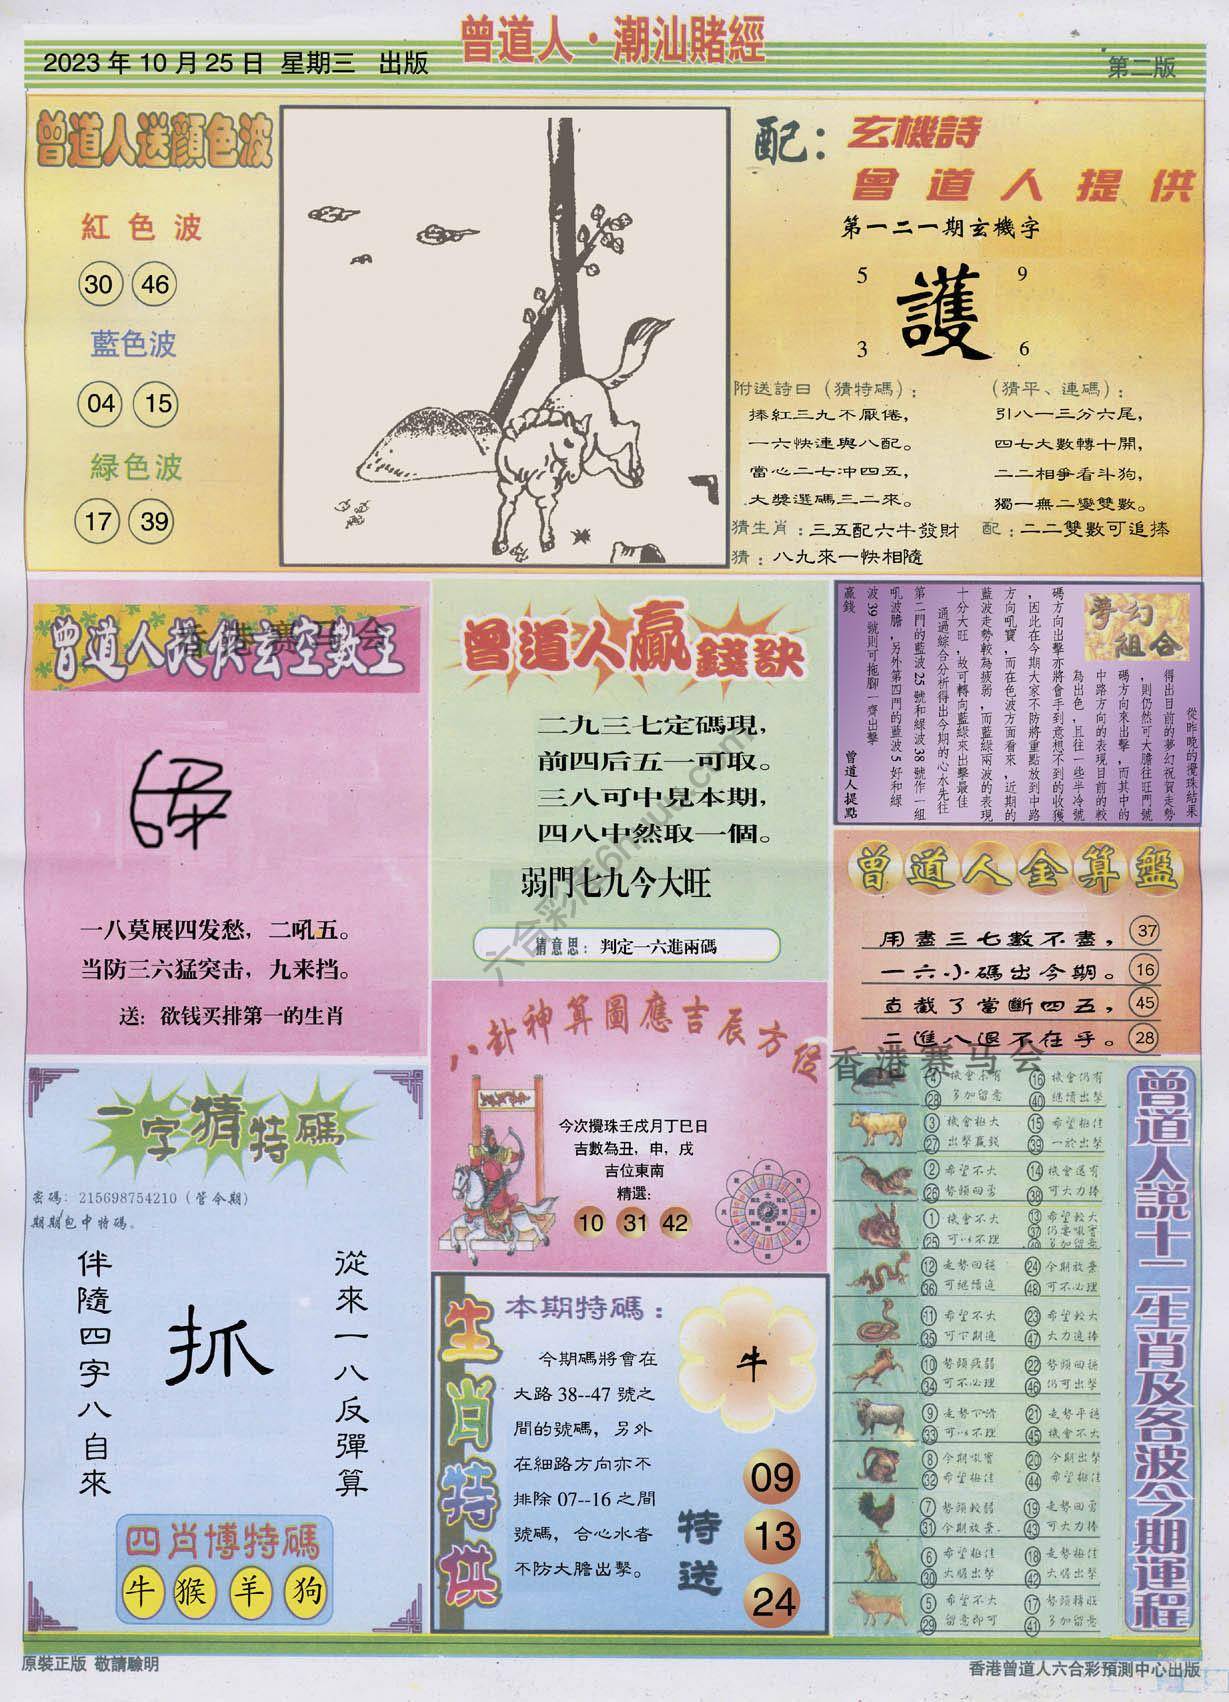 2023年10月25日 星期三 出版
曾道人·潮汕賭經
第二版
曾道人送顏色波
紅色波
30 46
藍色波
04 15
緑色波
17 39
配：玄機詩
曾道人提供
第一二一期玄機字
5 9
護
3 6
附送詩曰（猜特碼）：
捧紅三九不厭倦，
一六快連與八配。
當心二七冲四五，
大獎選碼三二來。
（猜平、連碼）：
引八一三分六尾，
四七大數轉十開，
二二相爭看斗狗，
獨一無二變雙數。
猜生肖：三五配六牛發財
配：二二雙數可追捧
猜：八九來一快相隨
曾道人提供玄空數王
香港赛马会
一八莫展四发愁，二吼五。
当防三六猛突击，九来挡。
送：欲钱买排第一的生肖
曾道人贏錢訣
二九三七定碼現，
前四后五一可取。
三八可中見本期，
四八中然取一個。
弱門七九今大旺
猜意思：判定一六進兩碼
夢幻組合
從昨晚的攪珠結果
得出目前的夢幻祝賀走勢
，則仍然可大膽往旺門號
碼方向來出擊，而其中的
中路方向的表現目前的較
為出色，且往一些半冷號
碼方向出擊亦將會手到意想不到的收獲
，因此在今期大家不防將重點放到中路
方向吼寶，而在色波方面看來，近期的
藍波走勢較為疲弱，而藍綠兩波的表現
十分大旺，故可轉向藍綠來出擊最佳
通過綜合分析得出今期的心水先往
第二門的藍波25號和綠波38號作一組
吼波膽，另外第四門的藍波5好和綠
波39號則可拖腳一齊出擊
贏錢
曾道人提點
曾道人金算盤
用盡三七數不盡， 37
一六小碼出今期。 16
直截了當斷四五， 45
二進八退不在乎。 28
八卦神算圖應吉辰方位
今次攪珠壬戌月丁巳日
吉數為丑，申，戌
吉位東南
精選：
10 31 42
一字猜特碼
密碼：215698754210（管今期）
期期包中特碼。
從來一八反彈算
抓
伴隨四字八自來
四肖博特碼
牛 猴 羊 狗
生肖特供
本期特碼：
今期碼將會在
大路38--47號之
間的號碼，另外
在細路方向亦不
排除07--16之間
號碼，合心水者
不防大膽出擊。
牛
特送
09
13
24
香港赛马会
曾道人説十二生肖及各波今期運程
4 機會未有 16 機會仍有
28 多加留意 40 繼續出擊
3 機會極大 15 希望極佳
27 出擊贏錢 39 一於出擊
2 希望不大 14 機會還有
26 勢頭回勇 38 可大力捧
1 機會不大 13 希望較大
25 可以不理 37 仍要吼實
49 多加留意
12 走勢回穩 24 今期放棄
36 可繼續追 48 可不必理
11 希望不大 23 希望較大
35 可下期追 47 大力追捧
10 勢頭疲弱 22 勢頭回穩
34 可不必理 46 仍可出擊
9 走勢下滑 21 走勢平穩
33 可以不理 45 機會不大
8 今期吼實 20 今期出擊
32 希望極佳 44 希望極佳
7 勢頭較弱 19 走勢回勇
31 今期放棄 43 可大力捧
6 希望極佳 18 走勢極佳
30 大膽出擊 42 大膽出擊
5 希望不大 17 勢頭轉旺
29 留意即可 41 多加留意
原裝正版 敬請驗明
香港曾道人六合彩預測中心出版